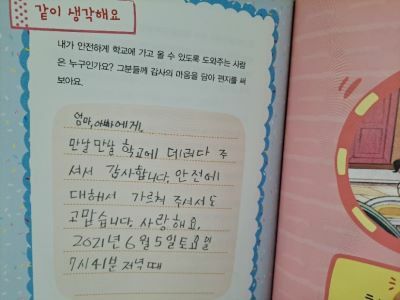 같이 생각해요
내가 안전하게 학교에 가고 올 수 있도록 도와주는 사람
은 누구인가요? 그분들께 감사의 마음을 담아 편지를 써
보아요.
엄마, 아빠에게,
만날만날 학교에 데려다 주
셔서 감사합니다. 안전에
대해서 가르쳐 주셔서도
고맙습니다. 사랑해요.
2021년 6월 5일토요일
7시41분 저녁때